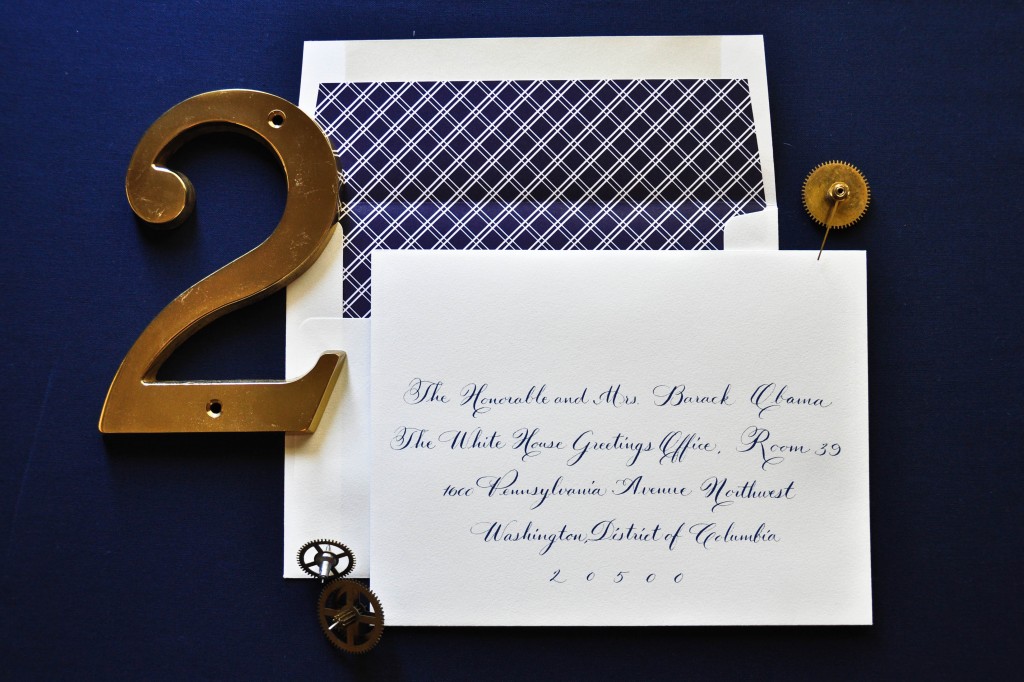 2
The Honorable and Mrs. Barack Obama
The White House Greetings Office, Room 39
1600 Pennsylvania Avenue Northwest
Washington, District of Columbia
2 0 5 0 0